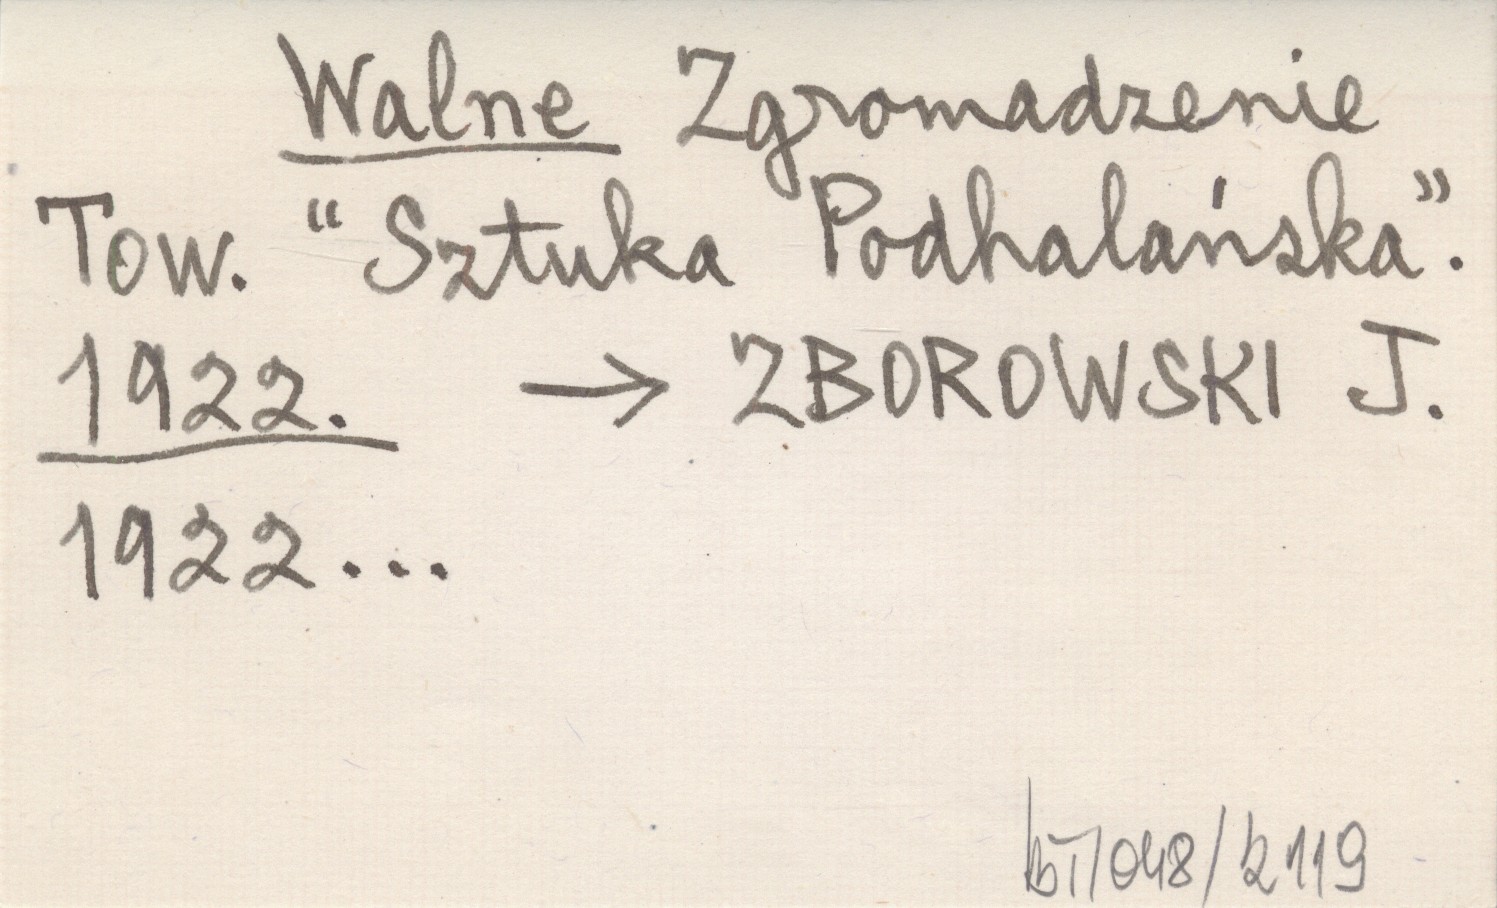 Walne Zgromadzenie
Tow. “Sztuka Podhalańska”.
1922. → ZBOROWSKI J.
1922...
/048/2119